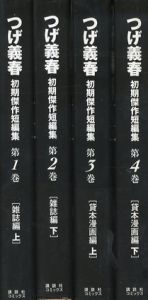 つげ義春
初期傑作短編集
第1巻
[雑誌編 上]
講談社
コミックス
つげ義春
初期傑作短編集
第2巻
[雑誌編 下]
講談社
コミックス
つげ義春
初期傑作短編集
第3巻
[貸本漫画編 上]
講談社
コミックス
つげ義春
初期傑作短編集
第4巻
[貸本漫画編 下]
講談社
コミックス